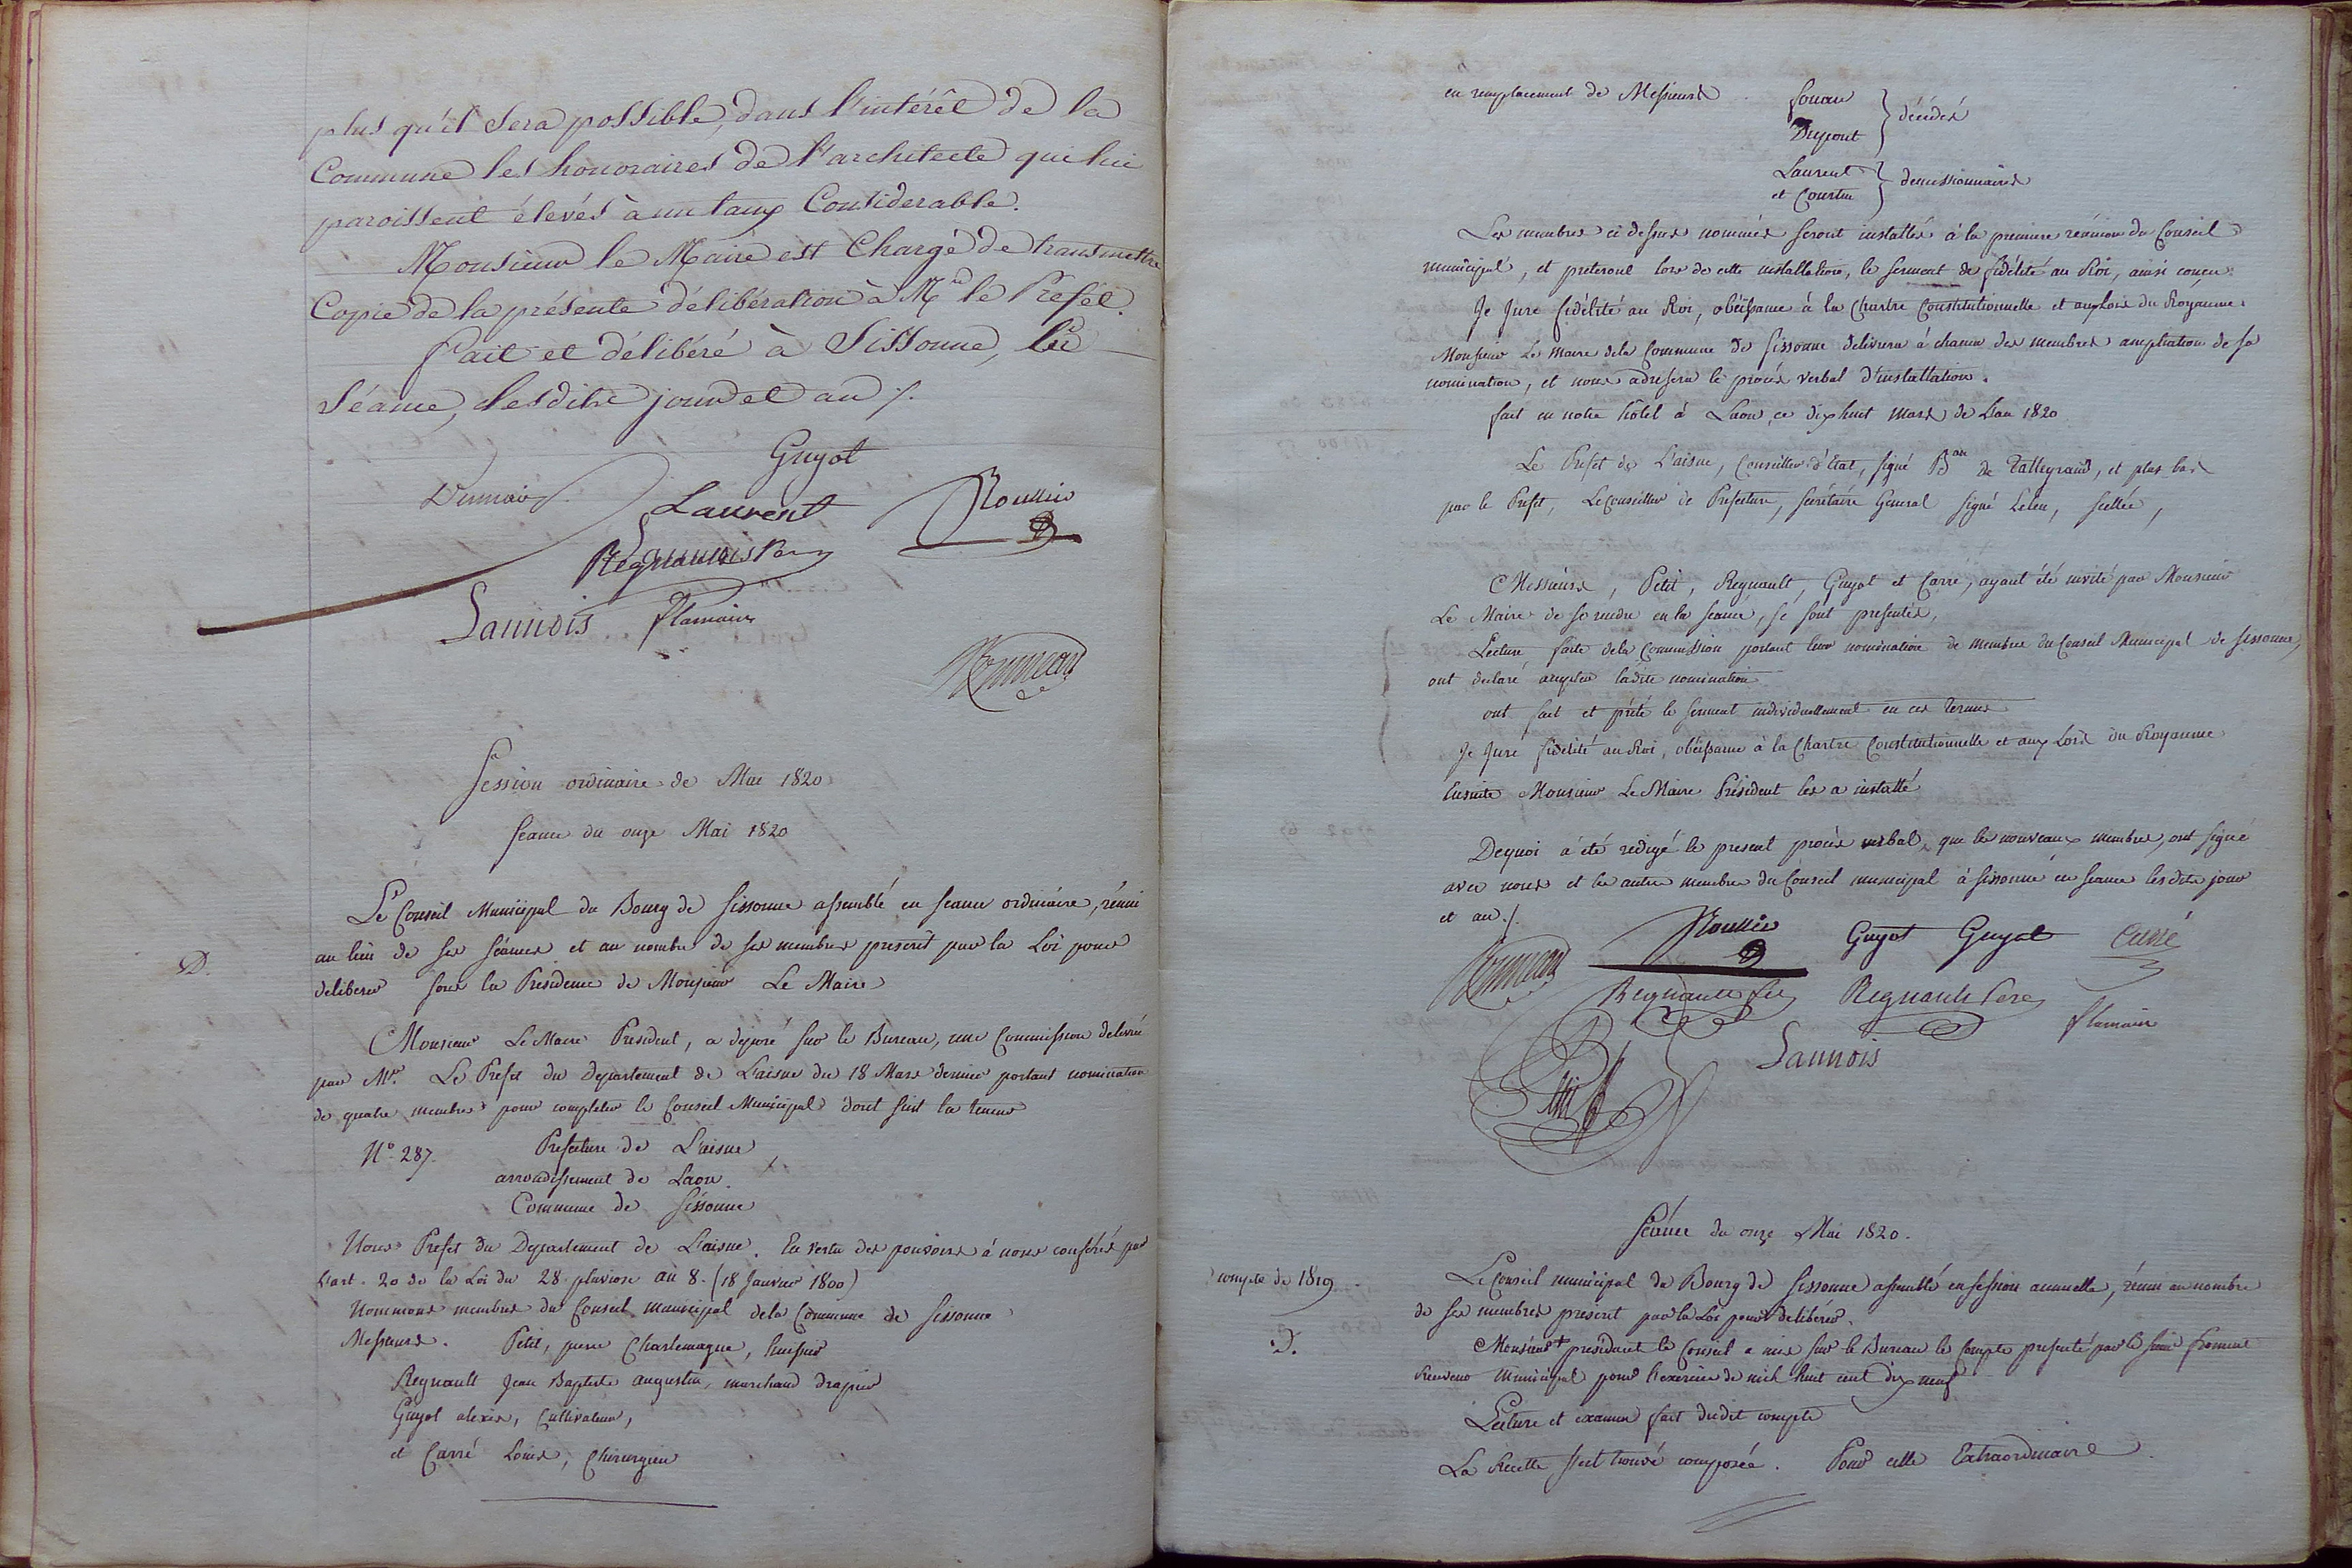 plus qu'il sera possible, dans l'intérêt de la
Commune les honoraires de l'architecte qui lui
paroissent élevés à un taux Considerable.
Monsieur le Maire est Chargé de transmettre
Copie de la présente délibération à Mr le Prefet.
Fait et délibéré à Sissonne, en
séance, lesdits jour et an ./.
Guyot
Laurent
Roussin
Regnault Père
Lannois Flamain
Session ordinaire de Mai 1820
Seance du onze Mai 1820
Le Conseil Municipal du Bourg de Sissonne assemblé en seance ordinaire, réuni
au lieu de ses séances et au nombre de ses membres prescrit par la Loi pour
D.
deliberer sous la Presidence de Monsieur Le Maire
Monsieur Le Maire President, a déposé sur le Bureau, une Commission delivrée
par Mr. Le Prefet du Departement de L'aisne du 18 Mars dernier portant nomination
de quatre membres pour completer le Conseil Municipal dont suit la teneur
N° 287. Prefecture de L'aisne
arrondissement de Laon
Commune de Sissonne
Nous Prefet du Departement de L'aisne. En vertu des pouvoirs à nous conferés par
l'art. 20 de la Loi du 28 pluviose an 8. (18 Janvier 1800)
Nommons membres du Conseil municipal dela Commune de Sissonne
Messieurs. Petit, pierre Charlemagne, huissier
Regnault Jean Baptiste augustin, marchand drapier
Guyot alexis, Cultivateur,
et Carré Louis, Chirurgien
en remplacement de Messieurs
Dupont
décédés
Laurent
et Courtin
demissionnaires
Les membres ci dessus nommés seront installés à la premiere réunion du Conseil
municipal, et preteront lors de cette installation, le serment de fidélité au Roi, ainsi conçu.
Je Jure fidélité au Roi, obéissance à la Chartre Constitutionnelle et aux Lois du Royaume.
Monsieur Le Maire dela Commune de Sissonne delivrera à chacun des membres ampliation de sa
nomination, et nous adressera le procès verbal d'installation.
fait en notre hôtel à Laon, ce dix huit mars de L'an 1820
Le Prefet de L'aisne, Conseiller d'Etat, signé Bon de Talleyrand, et plus bas
par le Prefet, Le Conseiller de Prefecture, Secrétaire General signé Leleu, scellée,
Messieurs, Petit, Regnault, Guyot et Carré, ayant été invité par Monsieur
Le Maire de se rendre en la seance, se sont presentés,
Lecture faite dela Commission portant leur nomination de membres du Conseil Municipal de Sissonne,
ont declaré accepter ladite nomination
ont fait et prêté le serment individuellement en ces termes
Je Jure fidélité au Roi, obéissance à la Chartre Constitutionnelle et aux Lois du Royaume
Ensuite Monsieur Le Maire Président les a installé
Dequoi a été redigé le present procès verbal, que les nouveaux membres, ont signé
avec nous et les autres membres du Conseil municipal à Sissonne en seance lesdits jour
et an ./.
Roussin
Guyot Guyot Carré
Regnault fils Regnault Pere
Flamain
Lannois
Petit
Séance du onze Mai 1820.
compte de 1819
Le Conseil municipal du Bourg de Sissonne assemblé en session annuelle, réuni au nombre
de ses membres prescrit par la Loi pour delibérer.
D.
Monsieur president le Conseil a mis sur le Bureau le Compte presenté par le sieur froment
Receveur Municipal pour l'exercice de mil huit cent dix neuf
Lecture et examen fait dudit compte
La Recette s'est trouvé composée. Pour celle Extraordinaire